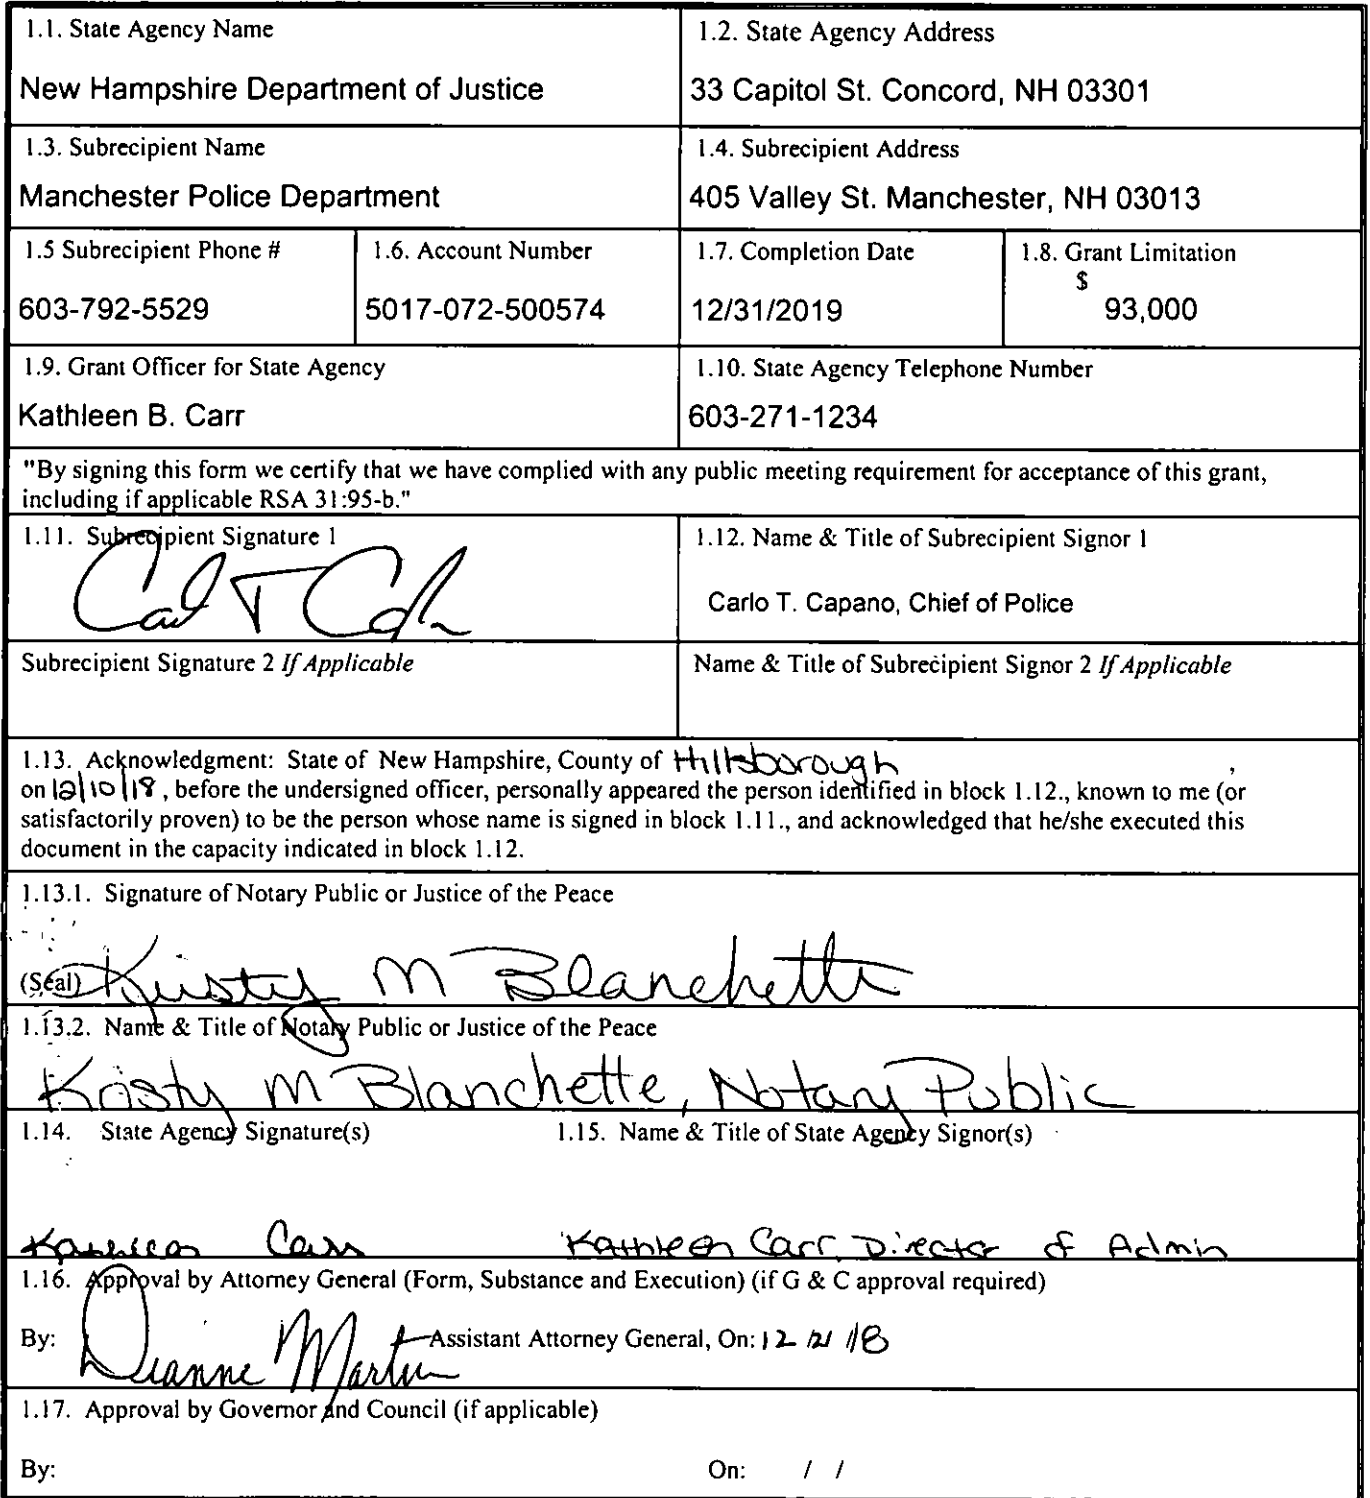 1.1. State Agency Name
New Hampshire Department of Justice
1.2. State Agency Address
33 Capitol St. Concord, NH 03301
1.3. Subrecipient Name
Manchester Police Department
1.4. Subrecipient Address
405 Valley St. Manchester, NH 03013
1.5 Subrecipient Phone #
603-792-5529
1.6. Account Number
5017-072-500574
1.7. Completion Date
12/31/2019
1.8. Grant Limitation
$ 93,000
1.9. Grant Officer for State Agency
Kathleen B. Carr
1.10. State Agency Telephone Number
603-271-1234
"By signing this form we certify that we have complied with any public meeting requirement for acceptance of this grant,
including if applicable RSA 31:95-b."
1.11. Subrecipient Signature 1
1.12. Name & Title of Subrecipient Signor 1
Carlo T. Capano, Chief of Police
Subrecipient Signature 2 If Applicable
Name & Title of Subrecipient Signor 2 If Applicable
1.13. Acknowledgment: State of New Hampshire, County of Hillsborough ,
on 12/10/18, before the undersigned officer, personally appeared the person identified in block 1.12., known to me (or
satisfactorily proven) to be the person whose name is signed in block 1.11., and acknowledged that he/she executed this
document in the capacity indicated in block 1.12.
1.13.1. Signature of Notary Public or Justice of the Peace
(Seal) Kristy M Blanchette
1.13.2. Name & Title of Notary Public or Justice of the Peace
Kristy M Blanchette, Notary Public
1.14. State Agency Signature(s)
1.15. Name & Title of State Agency Signor(s)
Kathleen Carr
Kathleen Carr, Director of Admin
1.16. Approval by Attorney General (Form, Substance and Execution) (if G & C approval required)
By: Dianne Martin Assistant Attorney General, On: 12/21/18
1.17. Approval by Governor and Council (if applicable)
By: On: / /